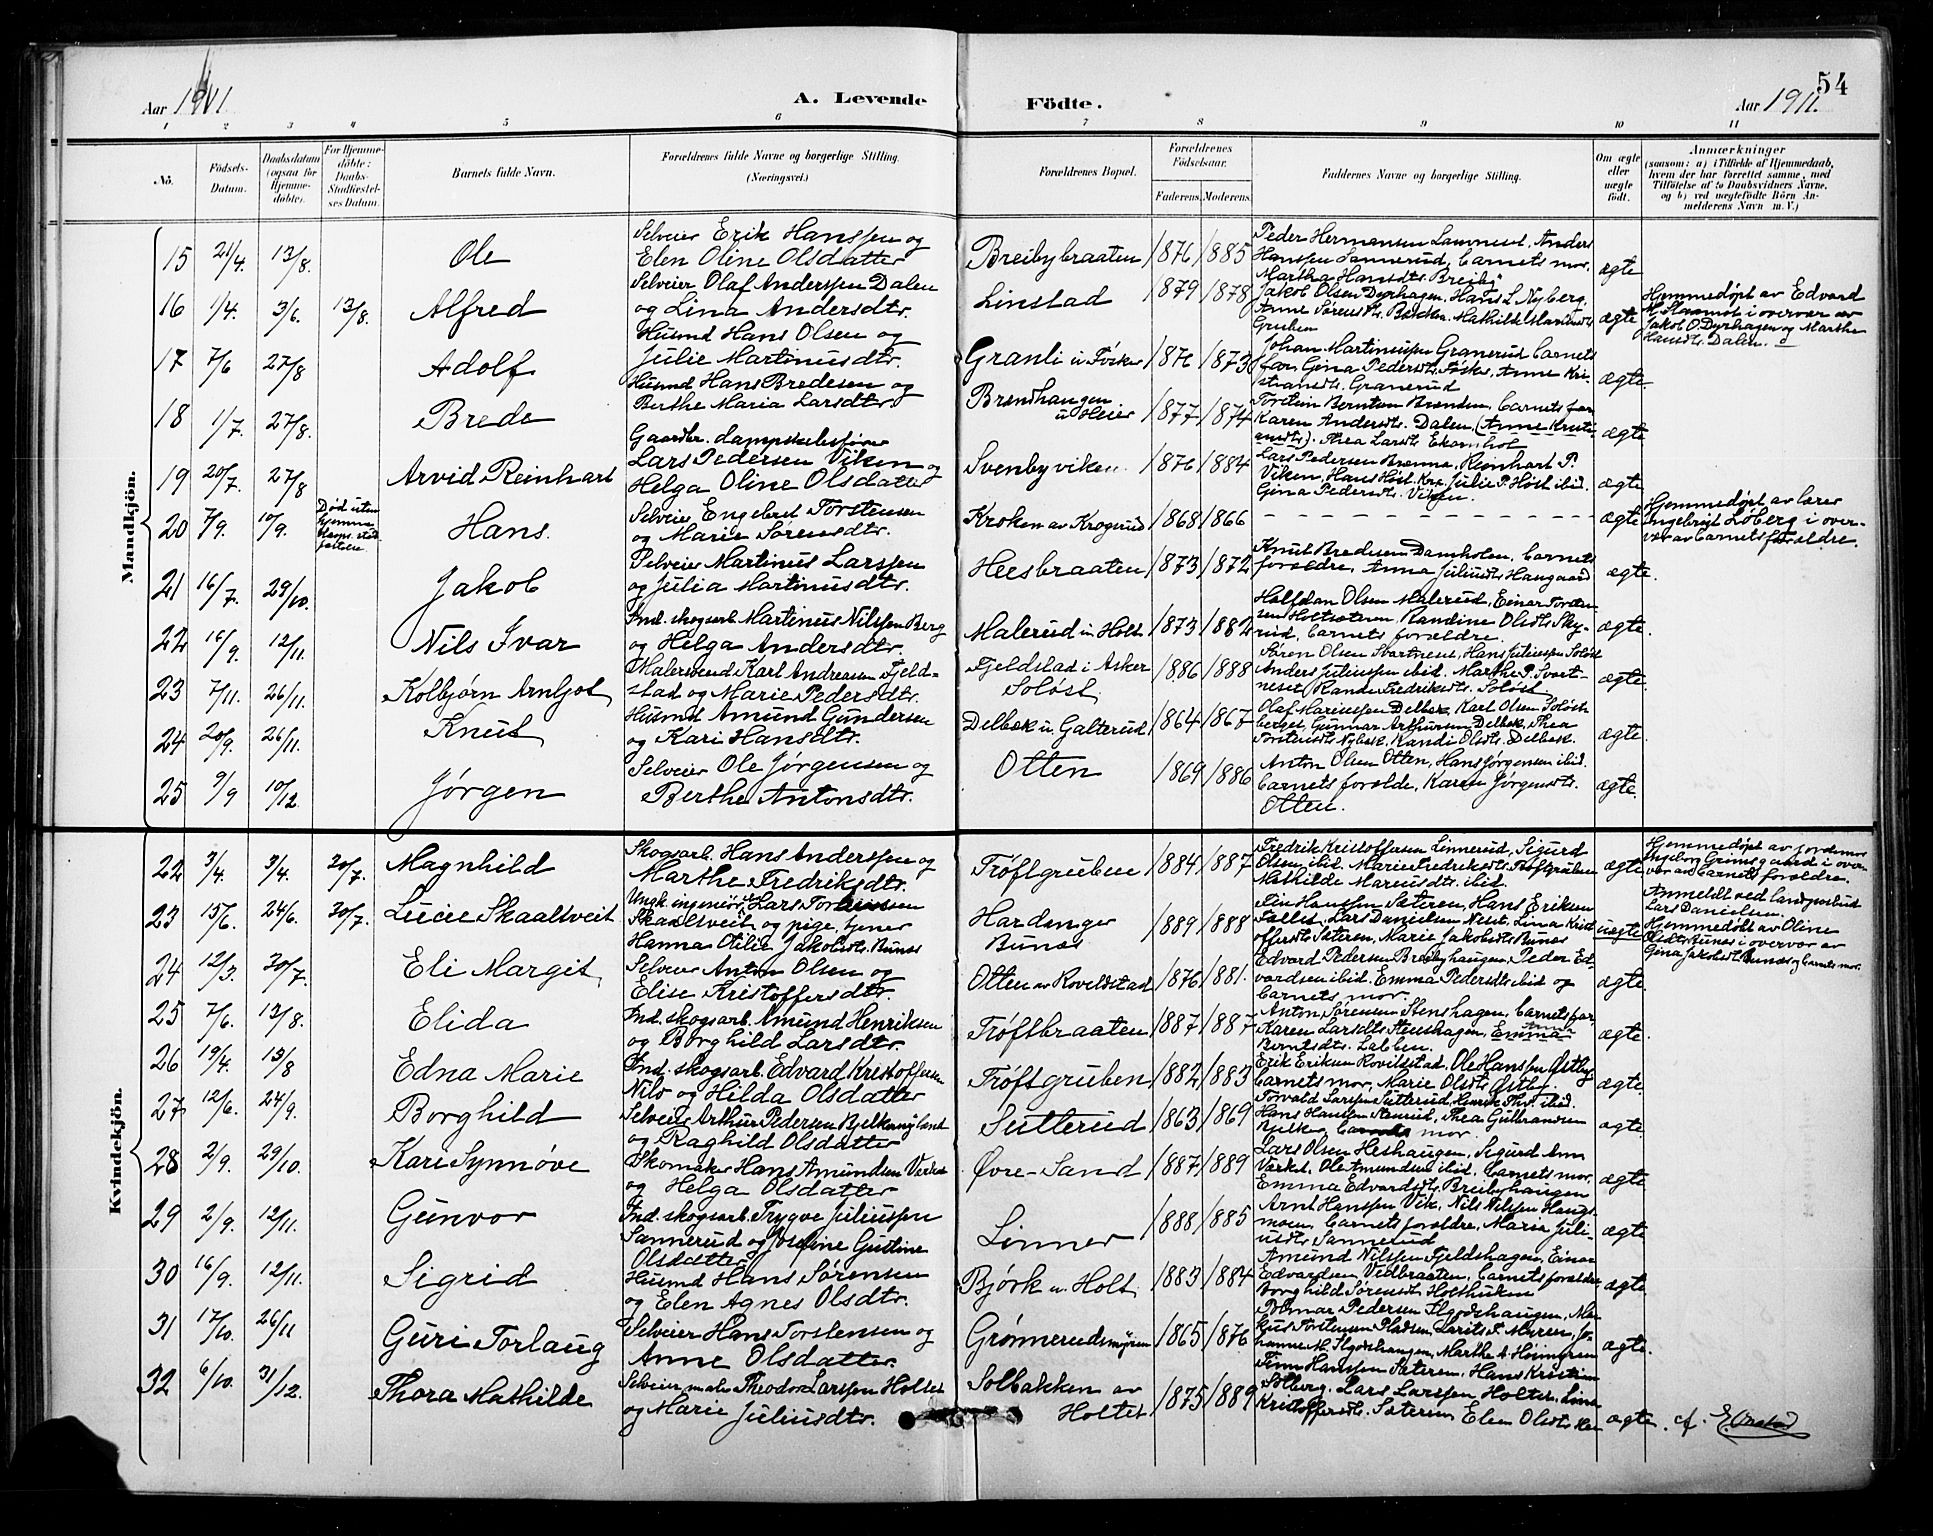 54
Aar 1911
A. Levende
Födte.
Aar 1911.
1 2 3 4 5 6 7 8 9 10 11
Nô.
Födsels-
Datum.
Daabsdatum
(ogsaa for
Hjemme-
döbte).
For Hjemme-
döbte:
Daabs-
Stadfæstel-
ses Datum.
Barnets fulde Navn.
Forældrenes fulde Navne og borgerlige Stilling.
(Næringsvei.)
Forældrenes Bopæl.
Forældrenes
Födselsaar.
Faderens
Moderens
Faddernes Navne og borgerlige Stilling.
Om ægte
eller
uægte
födt.
Anmærkninger
(saasom: a) i Tilfælde af Hjemmedaab,
hvem der har forrettet samme, med
Tilföielse af to Daabsvidners Navne,
og b) ved uægtefödte Börn An-
melderens Navn m. V.)
Mandkjön.
15 21/4. 13/8. Ole
Selveier Erik Hanssen og
Elen Oline Olsdatter
Breibybraaten 1876 1885
Peder Hermansen Lamnest, Anders
Hanssen Sannerud, barnets mor,
Martha Hansdtr. Breiby
ægte
16 1/4. 3/6. 13/8. Alfred
Selveier Olaf Anderssen Dalen
og Lina Andersdtr.
Linstad 1879 1878
Jakob Olsen Dyrhagen, Hans L. Nyberg,
Anne Sørensdtr. Bakken, Mathilde
Gruben
ægte
Hjemmedøpt av Edvard
i overvær av
Jakob O. Dyrhagen og Marthe
Hansdtr. Dalen.
17 7/6 27/8 Adolf
Husmd Hans Olsen og
Julie Martinusdtr.
Granli u. Føsker 1876 1873
Johan Martinussen Granerud, barnets
far, Gina Pedersdtr. Føsker, Anne Kri-
stiansdtr. Granerud
ægte.
18 1/7. 27/8. Brede
Husmd Hans Bredesen og
Berthe Maria Larsdtr.
Brændhaugen
u Heier 1877 1874
Torstein Berntsen Brenden, barnets far
Karen Andersdtr. Dalen, (Anne Kristi-
ansdtr). Thea Larsdtr. Ekornhol
ægte
19 20/7. 27/8 Arvid Reinhart
Gaardbr. dampskibsfører
Lars Pedersen Viken og
Helga Oline Olsdatter
Svenbyviken 1876 1884
Lars Pedersen Brenna, Reinhart P.
Viken, Hans Høst. Kra. Julie P. Høst ibid.
Gina Pedersdtr. Viken.
ægte
20 7/9. 10/9. Død uten
hjemme-
daaps stad-
fæstelse
Hans.
Selveier Engebret Torstensen
og Marie Sørensdtr.
Kroken av Krogerud 1868 1866
ægte
Hjemmedøpt av lærer
Ingebrigt Løberg i over-
vær av barnets forældre.
21 16/7. 29/10. Jakob
Selveier Martinus Larssen
og Julia Martinusdtr.
Heesbraaten 1873 1872
Knut Bredesen Damholen, barnets
forældre, Anna Juliusdtr Haugaard
ægte.
22 16/9. 12/11. Nils Ivar
Ind. skogsarb. Martinus Nilssen Berg
og Helga Andersdtr.
Malerud u. Holt 1873 1882
Halfdan Olsen Malerud, Einar Torsten-
sen Holtsæteren, Randine Olsdtr. Sky-
rud, barnets forældre.
ægte.
23 7/11. 26/11. Kolbjørn Arnljot
Malersvend Karl Andreassen Fjeld-
stad og Marie Pedersdtr.
Fjeldstad i Asker
Soløst. 1886 1888
Søren Olsen Svartneset, Hans Juliussen Soløst
Anders Juliussen ibid. Marthe P. Svart-
neset Randi Fredriksdtr. Soløst
ægte.
24 20/9. 26/11. Knut
Husmd Amund Gundersen
og Kari Hansdtr.
Delbæk u. Galterud 1864 1867
Olaf Mariussen Delbæk, Karl Olsen Soløst-
berget, Gunnar Arthursen Delbæk, Thea
Torstensdtr Nybæk, Randi Olsdtr. Delbæk.
ægte.
25 9/9 10/12. Jørgen
Selveier Ole Jørgensen og
Berthe Antonsdtr.
Otten 1869 1886
Anton Olsen Otten, Hans Jørgensen ibid.
barnets forælde, Karen Jørgensdtr.
Otten.
ægte.
Kvindekjön.
22 3/4. 3/4. 30/7. Magnhild
Skogsarb. Hans Anderssen og
Marthe Fredriksdtr.
Trøftgruben 1884 1887
Fredrik Kristoffersen Linnerud, Sigurd
Olsen ibid. Marie Fredriksdtr. Trøftgruben
Mathilde Mariusdtr. ibid.
ægte
Hjemmedøpt av jordemor
Ingeborg Grimsgaard i over-
vær av barnets forældre.
23 15/6. 24/6. 30/7. Lucie Skaaltveit
Ungk. ingeniør Lars
Skaaltveit og pige, tjener
Hanna Otilie Jakobsdtr. Bunæs
Hardanger
Bunæs 1889 1888
Finn Hanssen Sæteren, Hans Eriksen
Fallet, Lars Danielsen Neset, Lina Krist-
offersdtr. Sæteren, Marie Jakobsdtr Bunæs
uægte
Anmeldt ved landpostbud
Lars Danielsen.
Hjemmedøbt av Oline
Olsdtr Bunæs i overvær av
Gina Jakobsdtr. Bunæs og barnets mor.
24 12/3. 30/7. Eli Margit
Selveier Anton Olsen og
Elise Kristoffersdtr.
Otten av Roveldstad 1876 1881.
Edvard Pedersen Breibyhaugen, Peder Ed-
vardsen ibid. Emma Pedersdtr ibid og
barnets mor.
ægte.
25 7/6. 13/8. Elida
Ind. skogsarb. Amund Henriksen
og Borghild Larsdtr.
Trøftbraaten 1887 1887
Anton Sørensen Stenshagen, barnets far,
Karen Larsdtr Stenshagen, Emma Anna
Berntsdtr. Labben.
ægte.
26 19/4. 13/8 Edna Marie
Ind. skogsarb. Edvard Kristoffersen
Nilo og Hilda Olsdatter
Trøftgruben 1882 1883
Erik Eriksen Roveldstad, Ole Hanssen Østby
barnets mor, Marie Olsdtr Østby.
ægte.
27 12/6. 24/9. Borghild
Selveier Arthur Pedersen Bjelkenyland
og Raghild Olsdatter
Sutterud 1863 1869
Torvald Larssen Sutterud, Henrik Thv. ibid.
Hans Hansen Stenrud, Thea Gulbrandsen
Bjelke, barnets mor.
ægte.
28 2/9. 29/10. Kari Synnøve
Skomaker Hans Amundsen Verket
og Helga Olsdatter
Øvre-Sand 1887 1889
Lars Olsen Heshaugen, Sigurd Am.
Verket, Ole Amundsen ibid. barnets mor,
Emma Edvardsdtr. Breibyhaugen
ægte.
29 2/9. 12/11. Gunvor
Ind. skogsarb. Trygve Juliussen
Sannerud og Josefine Gustine
Olsdatter
Linner 1888 1885
Arnt Hanssen Vik, Nils Nilssen Haugs-
moen, barnets forældre, Maria Juli-
usdtr Sannerud
ægte
30 16/9. 12/11. Sigrid
Husmd Hans Sørensen
og Elen Agnes Olsdtr.
Bjørk u. Holt. 1883 1884
Amund Nilssen Fjeldshagen, Einar
Edvardsen Vedbraaten, barnets forældre
Borghild Sørensdtr Holthuken
ægte
31 17/10. 26/11 Guri Torlaug
Selveier Hans Torstensen og
Anne Olsdatter.
Grønnerudsmyren 1865 1876
Pedersen
Torstensen Pladsen, Myren, Jo-
hanne M. Marthe A.
ægte.
32 6/10. 31/12. Thora Mathilde
Selveier, maler Theodor Larssen Holtet
og Marie Juliusdtr.
Solbakken av
Holtet 1875 1889
Finn Hanssen Sæteren, Hans Kristian
Solberg, Lars Larssen Holtet, Lina
Kristoffersdtr. Sæteren Elen Olsdtr.
ægte. cf.